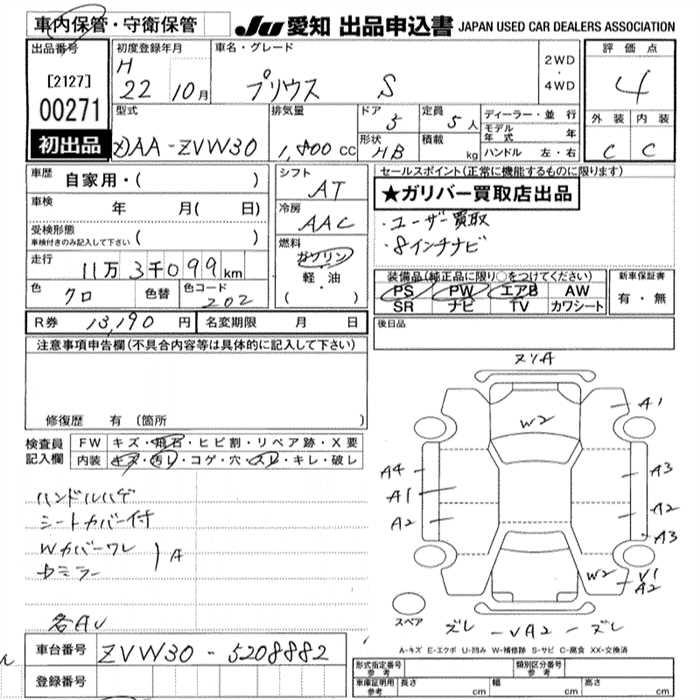 車内保管・守衛保管
JU 愛知 出品申込書 JAPAN USED CAR DEALERS ASSOCIATION
出品番号
[2127]
00271
初出品
初度登録年月
H
22 10月
車名・グレード
プリウス S
2WD
・
4WD
評価点
4
外装 内装
C C
型式
DAA-ZVW30
排気量
1,800 cc
ドア
5
定員
5人
形状
HB
積載
kg
ディーラー・並行
モデル年式 年
ハンドル 左・右
車歴
自家用・( )
車検
年 月( 日)
受検形態
車検付きのみ記入して下さい ( )
走行
11万3千099km
色
クロ
色替
色コード
202
シフト
AT
冷房
AAC
燃料
ガソリン
・
軽・油
( ・ )
R券 13,190円
名変期限 月 日
セールスポイント(正常に機能するものに限ります)
★ガリバー買取店出品
・ユーザー買取
・8インチナビ
装備品(純正品に限り○をつけてください)
PS PW エアB AW
SR ナビ TV カワシート
新車保証書
有・無
後日品
注意事項申告欄(不具合内容等は具体的に記入して下さい)
修復歴 有(箇所 )
検査員記入欄
FW キズ・飛石・ヒビ割・リペア跡・X要
内装 キズ・汚レ・コゲ・穴・スレ・キレ・破レ
ハンドルハゲ
シートカバー付
Wカバーワレ
A
各AU
スリA
W2
A1
A4
A1
A2
A3
A2
A3
W2
V1
A2
スペア
ズレ - VA2 - ズレ
A-キズ E-エクボ U-凹み W-補修跡 S-サビ C-腐食 XX-交換済
車台番号
ZVW30-5208882
登録番号
形式指定番号
参考
類別区分番号
参考
車庫証明用
参考
長さ cm
幅 cm
高さ cm